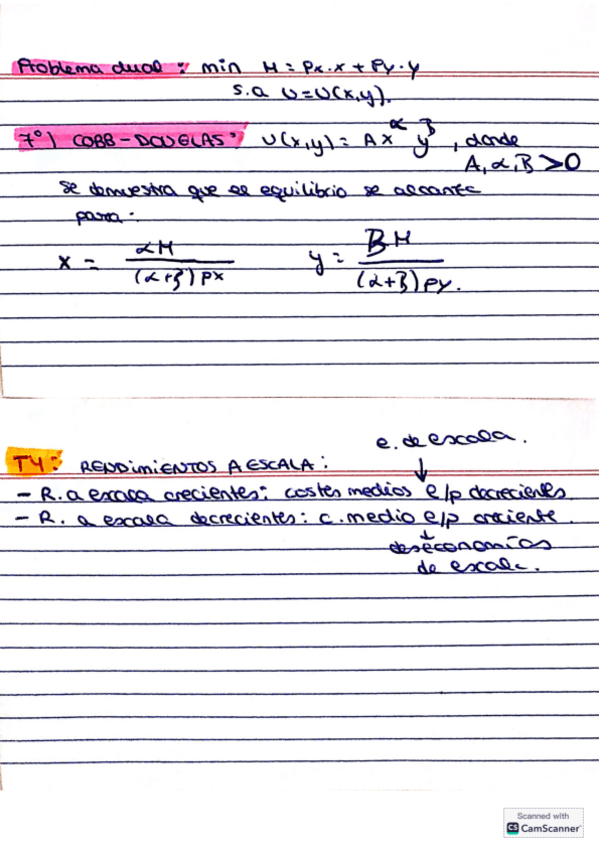 Problema dual: min M = Px·x + Py·y
s.a U=U(x,y).
7º) COBB-DOUGLAS: U(x,y) = A x^α y^β, donde
A, α, β > 0
Se demuestra que el equilibrio se alcanza
para:
x = αM / (α+β) Px    y = βM / (α+β) Py.
e. de escala.
T4: RENDIMIENTOS A ESCALA:
- R. a escala crecientes: costes medios e/p decrecientes
- R. a escala decrecientes: c. medio e/p creciente.
deseconomías
de escala.
Scanned with
CS CamScanner